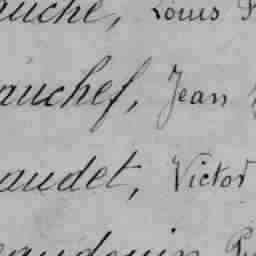 auche, Louis
auchef, Jean
audet, Victor
eaudouin